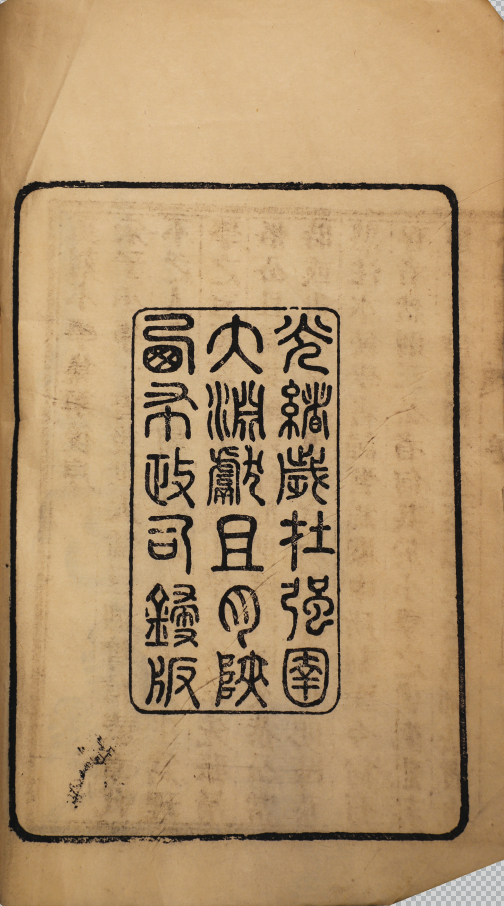 光緒歲在强圉
大淵獻且月陝
西布政司鋟版